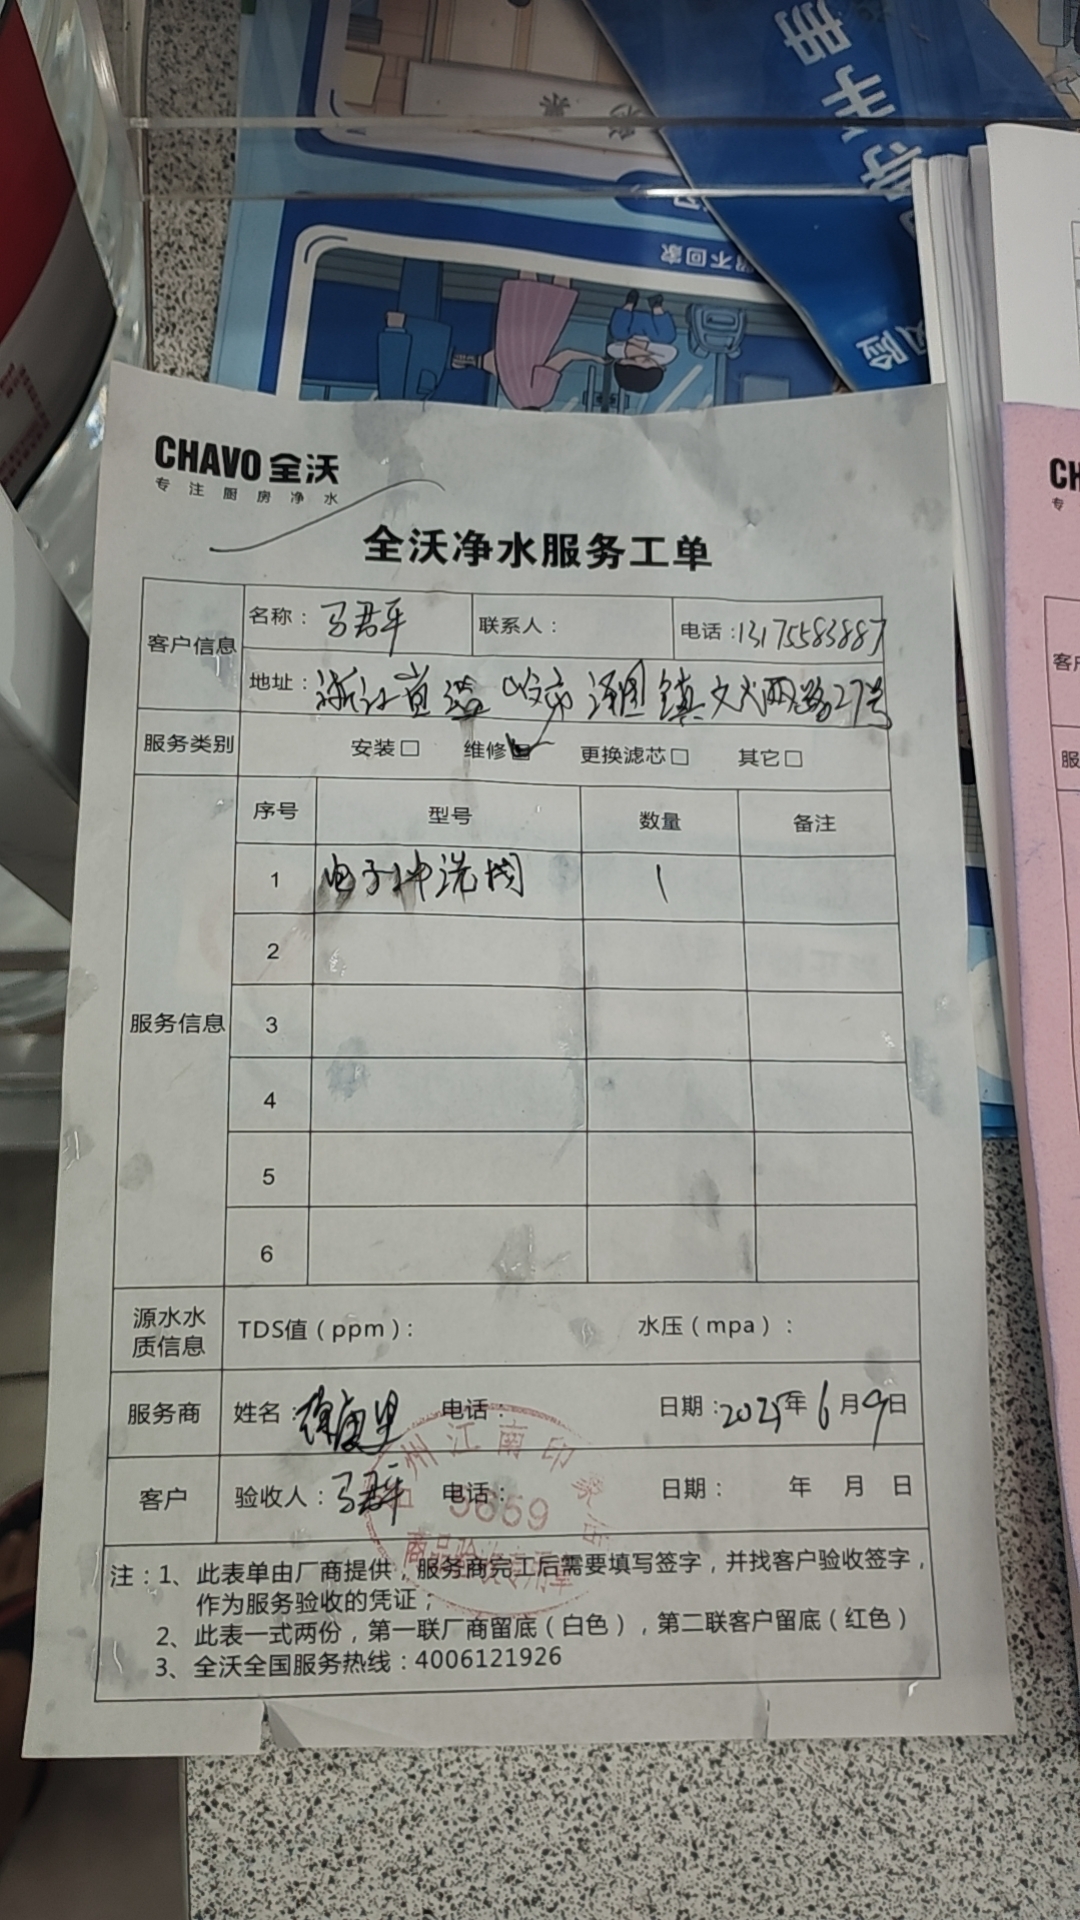 册手
险
留不回家
CHAVO 全沃
专注厨房净水
全沃净水服务工单
客户信息
名称：马君平
联系人：
电话：13175583887
地址：浙江省 镇 路27号
服务类别
安装□ 维修☑ 更换滤芯□ 其它□
服务信息
序号 型号 数量 备注
1 电子冲洗阀 1
2
3
4
5
6
源水水质信息
TDS值（ppm）： 水压（mpa）：
服务商 姓名： 电话： 日期：2025年6月9日
客户 验收人：马君平 电话： 日期： 年 月 日
州江南印象店
5659
商品验收专用章
注：1、此表单由厂商提供，服务商完工后需要填写签字，并找客户验收签字，
作为服务验收的凭证；
2、此表一式两份，第一联厂商留底（白色），第二联客户留底（红色）
3、全沃全国服务热线：4006121926
CH
专
客户
服